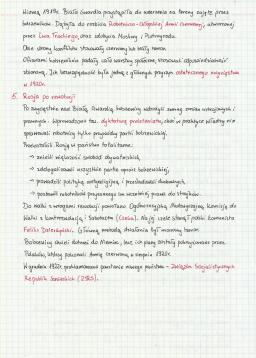 Wiosną 1919r. Biała Gwardia przystąpiła do uderzenia na tereny zajęte przez
bolszewików. Dążyła do rozbicia Robotniczo-Chłopskiej Armii Czerwonej, utworzonej
przez Lwa Trockiego, oraz zdobycia Moskwy i Piotrogrodu.
Obie strony konfliktu stosowały czerwony lub biały terror.
Ofiarami bolszewików padały całe warstwy społeczne, stosowali odpowiedzialność
zbiorową. Ich bezwzględność była jedną z głównych przyczyn ostatecznego zwycięstwa
w 1920r.
5. Rosja po rewolucji
Po zwycięstwie nad Białą Gwardią bolszewicy wdrożyli szereg zmian ustrojowych i
prawnych. Wprowadzono tzw. dyktaturę proletariatu, choć w praktyce władzy nie
sprawowali robotnicy tylko przywódcy partii bolszewickiej.
Przekształcili Rosję w państwo totalitarne:
→ znieśli większość swobód obywatelskich,
→ zdelegalizowali wszystkie partie oprócz bolszewickiej,
→ prowadzili politykę antyreligijną i prześladowali duchownych,
→ pozbawili robotników przysługującego im wcześniej prawa do strajków.
Do walki z wrogami rewolucji powołano Ogólnorosyjską Nadzwyczajną Komisję do
Walki z Kontrrewolucją i Sabotażem (Czeka). Na jej czele stanął polski komunista
Feliks Dzierżyński. Główną metodą działania był masowy terror.
Bolszewicy chcieli dotrzeć do Niemiec, lecz ich plany zostały pokrzyżowane przez
Polaków, którzy pokonali Armię Czerwoną w sierpniu 1920r.
W grudniu 1922r. proklamowano powstanie nowego państwa – Związku Socjalistycznych
Republik Sowieckich (ZSRS).